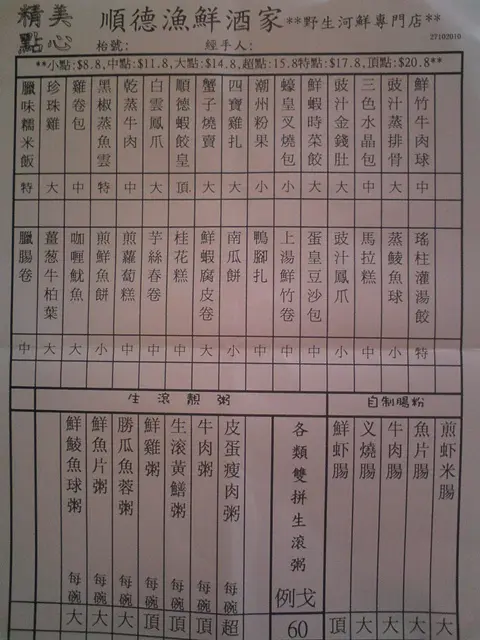 精美點心
順德漁鮮酒家 **野生河鮮專門店**
枱號: 經手人: 27102010
**小點:$8.8,中點:$11.8,大點:$14.8,超點:15.8特點:$17.8,頂點:$20.8**
鮮竹牛肉球 中
豉汁蒸排骨 大
三色水晶包 中
豉汁金錢肚 大
鮮蝦時菜餃 大
蠔皇叉燒包 小
潮州粉果 小
四寶雞扎 大
蟹子燒賣 大
順德蝦餃皇 頂
白雲鳳爪 大
乾蒸牛肉 中
黑椒蒸魚雲 特
雞卷包 中
珍珠雞 大
臘味糯米飯 特
瑤柱灌湯餃 特
蒸鯪魚球 小
馬拉糕 中
豉汁鳳爪 小
蛋皇豆沙包 中
上湯鮮竹卷 中
鴨腳扎 中
南瓜餅 小
鮮蝦腐皮卷 大
桂花糕 中
芋絲春卷 中
煎蘿蔔糕 中
煎鮮魚餅 小
咖喱魷魚 大
薑葱牛柏葉 大
臘腸卷 中
生滾靚粥
自制腸粉
煎虾米腸 大
魚片腸 大
牛肉腸 大
义燒腸 大
鮮虾腸 頂
各類雙拼生滾粥 例戈 60
皮蛋瘦肉粥 每碗 超
牛肉粥 每碗 頂
生滾黃鱔粥 每碗 頂
鮮雞粥 每碗 頂
勝瓜魚蓉粥 每碗 大
鮮魚片粥 每碗 大
鮮鯪魚球粥 每碗 大